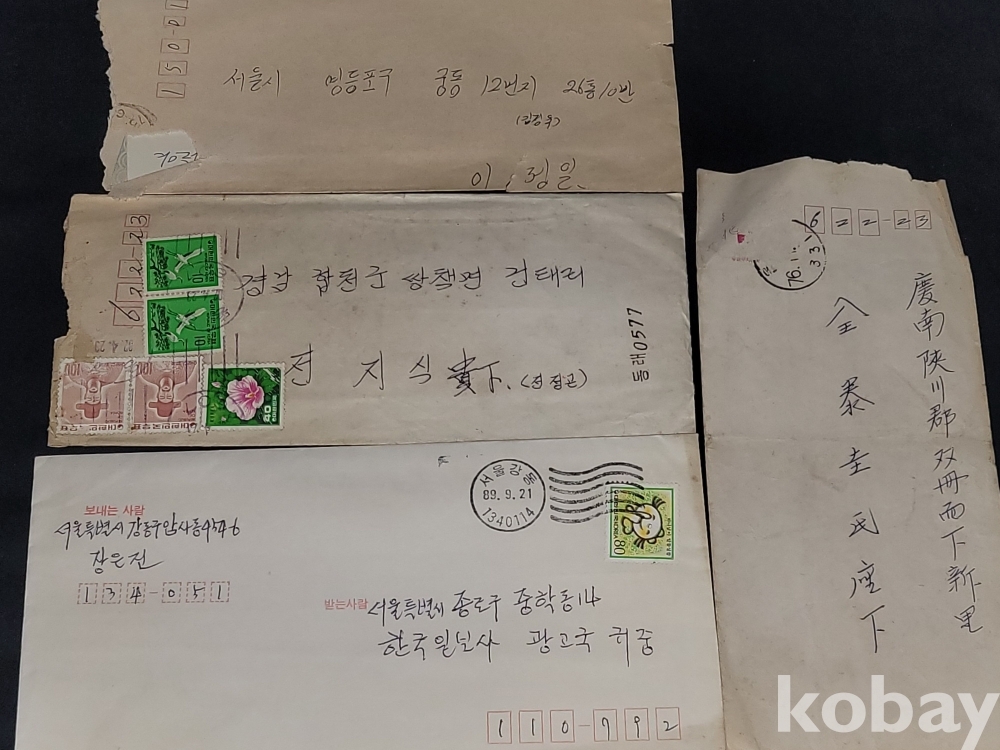 150-01
서울시 영등포구 궁동 12번지 26통10반
이, 정일
622-23
경남 합천군 쌍책면 건태리
전 지 식 貴下.
동래0577
10
10
100
100
40
대한민국우표
보내는 사람
서울특별시 강동구 암사동
장은전
134-051
서울강동
89.9.21
1340114
80
받는사람 서울특별시 종로구 중학동14
한국일보사 광고국 귀중
110-792
622-23
76.1
慶南陜川郡双冊面下新里
全泰圭氏座下
kobay